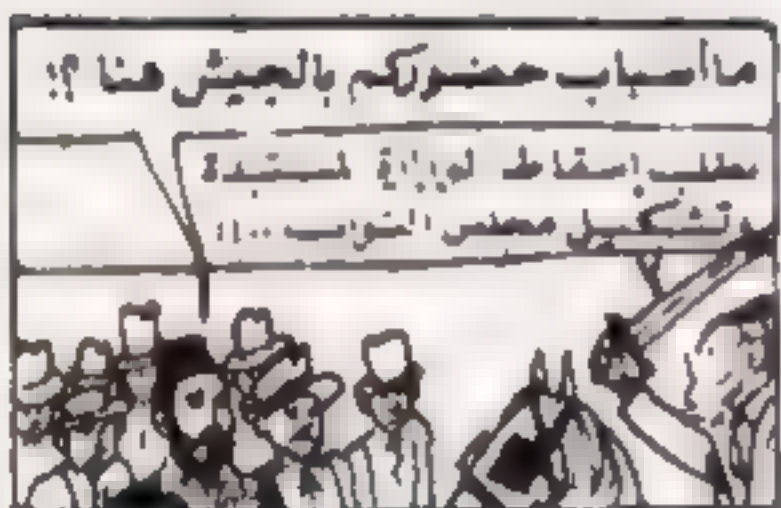 ما أسباب حضوركم بالجيش هنا ؟!
مطلب إسقاط الوزارة المستبدة
وتشكيل مجلس النواب ..!!